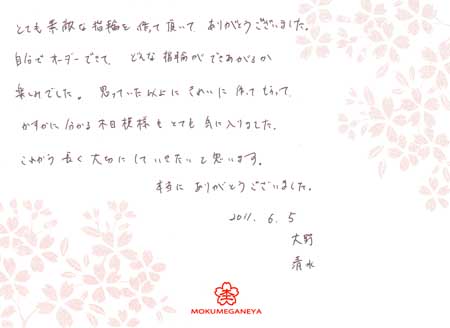 とても素敵な指輪を作って頂いて ありがとうございました。
自分で オーダーできて、どんな 指輪が できあがるか
楽しみでした。思っていた以上に きれいに 作ってもらって
かすかに分かる 木目模様も とても 気に入りました。
これから 長く 大切に していきたいと思います。
本当に ありがとうございました。
2011. 6. 5
大野
清水
MOKUMEGANEYA